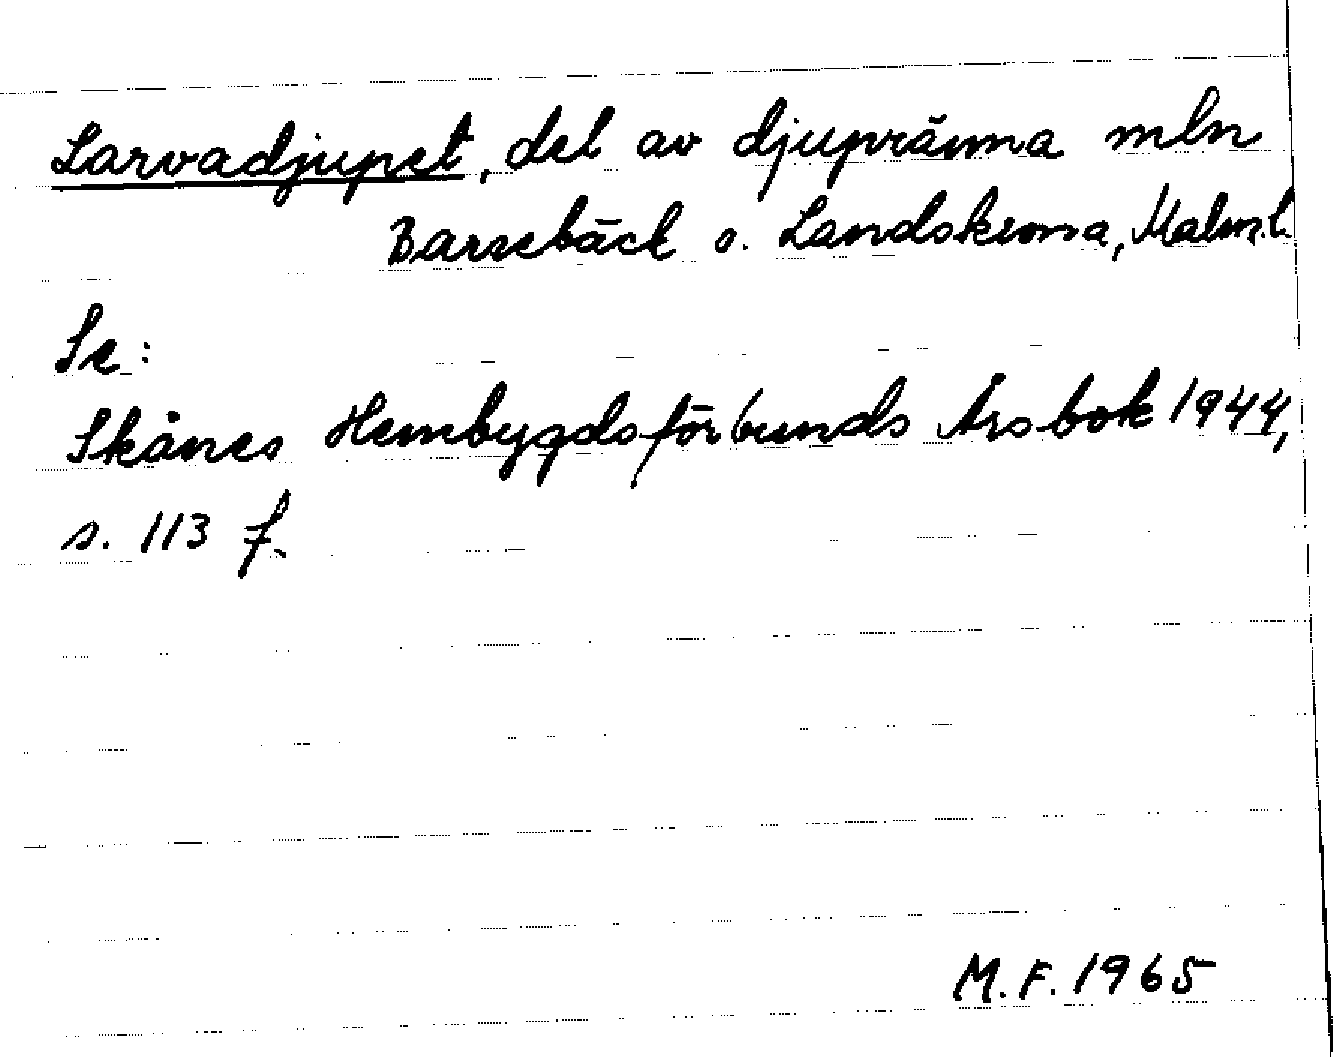 Larvadjupet, del av djupränna mln
Barsebäck o. Landskrona, Malm.l.
Se:
Skånes Hembygdsförbunds Årsbok 1944,
s. 113 f.
M.F. 1965